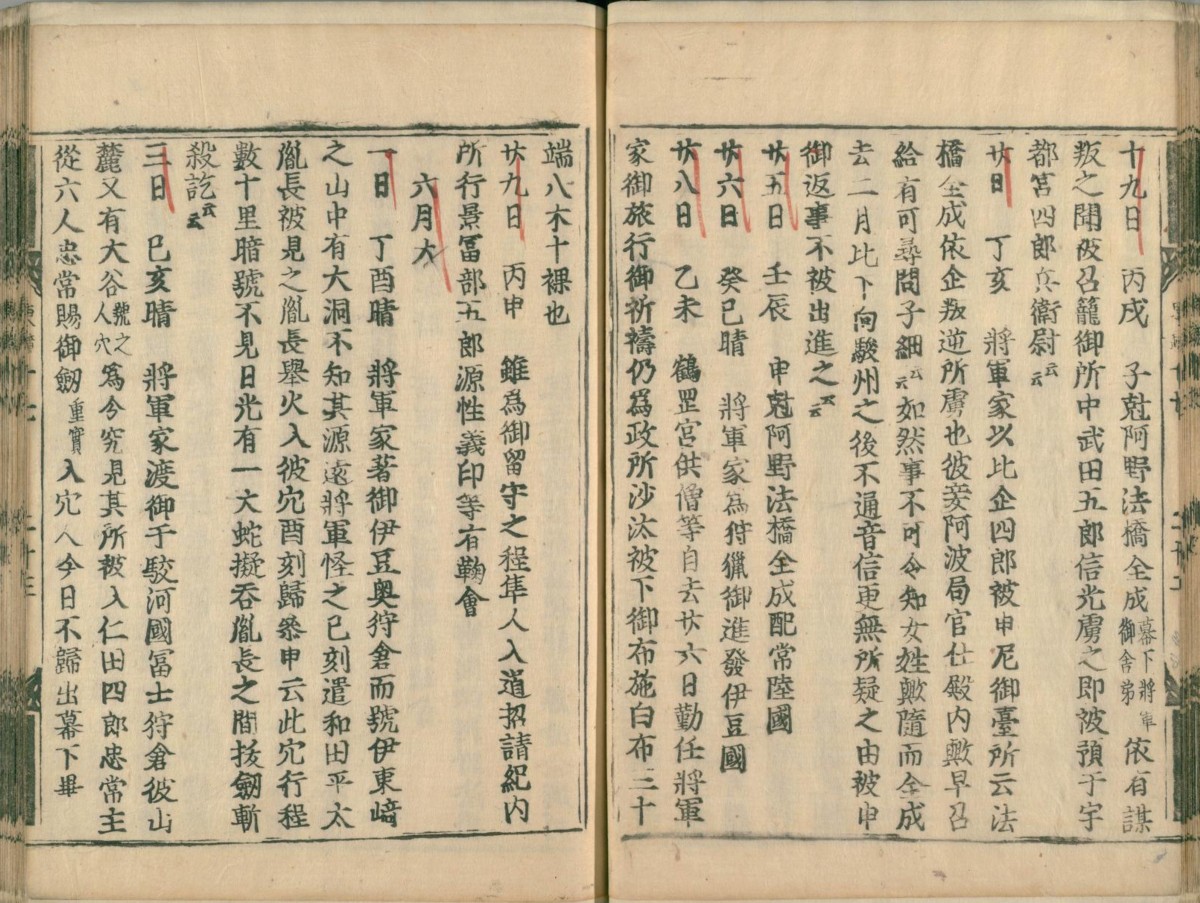 十九日　丙戌　子尅阿野法橋全成幕下將軍御舎弟依有謀
叛之聞被召籠御所中武田五郎信光虜之即被預于宇
都宮四郎兵衛尉云云
廿日　丁亥　將軍家以比企四郎被申尼御臺所云法
橋全成依企叛逆所虜也彼妾阿波局官仕殿内歟早召
給有可尋問子細云云如然事不可令知女姓歟隨而全成
去二月比下向駿州之後不通音信更無所疑之由被申
御返事不被出進之云云
廿五日　壬辰　申尅阿野法橋全成配常陸國
廿六日　癸巳晴　將軍家為狩獵御進發伊豆國
廿八日　乙未　鶴罡宮供僧等自去廿六日勤任將軍
家御旅行御祈禱仍為政所沙汰被下御布施白布三十
端八木十裸也
廿九日　丙申　雖為御留守之程隼人入道招請紀内
所行景冨部五郎源性義印等有鞠會
六月大
一日　丁酉晴　將軍家著御伊豆奥狩倉而號伊東﨑
之山中有大洞不知其源遠將軍怪之巳刻遣和田平太
胤長被見之胤長舉火入彼穴酉刻歸參申云此穴行程
數十里暗號不見日光有一大蛇擬呑胤長之間抜劔斬
殺訖云云
三日　巳亥晴　將軍家渡御于駿河國冨士狩倉彼山
麓又有大谷號之人穴為令究見其所被入仁田四郎忠常主
從六人忠常賜御劔重寳入穴八今日不歸出幕下畢